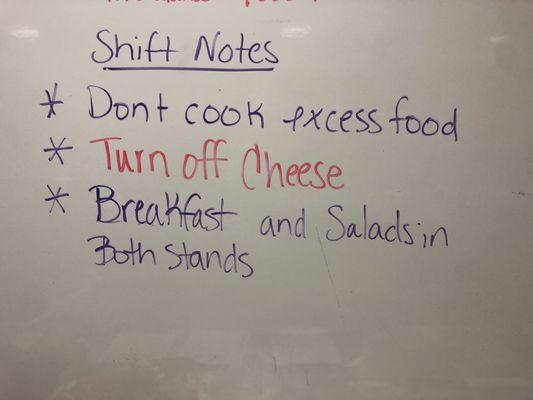 Shift Notes
* Dont cook excess food
* Turn off Cheese
* Breakfast and Salads in
Both Stands